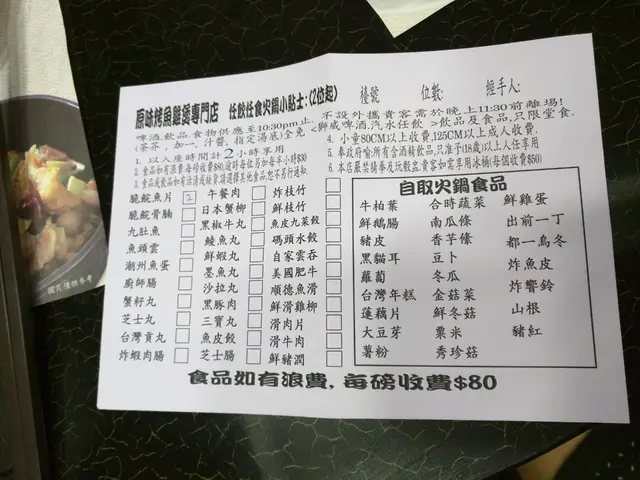 原味烤魚雞煲專門店 任飲任食火鍋小貼士:(2位起) 檯號 位數: 經手人:
啤酒.飲品.食物供應至10:30pm止. 不設外攜貴客需於晚上11:30前離場!
(茶芥、加一、汁醬、指定湯底)全免 獅威啤酒.汽水任飲>飲品及食品,只限堂食.
1. 以入座時間計2小時享用
2. 食品如有浪費,每磅收費$80,逾時每位另加每半小時$30
4. 小童80CM以上收費,125CM以上成人收費.
5. 奉政府喻,所有含酒精飲品,只准予(18歲)以上人仕享用
脆脘魚片 2 午餐肉 炸枝竹
脆脘骨腩 日本蟹柳 鮮枝竹
九肚魚 黑椒牛丸 魚皮九菜餃
魚頭雲 鯪魚丸 碼頭水餃
潮州魚蛋 鮮蝦丸 自家雲吞
廚師腸 墨魚丸 美國肥牛
蟹籽丸 沙拉丸 順德魚滑
芝士丸 黑豚肉 鮮滑雞柳
台灣貢丸 三寶丸 滑肉片
炸蝦肉腸 魚皮餃 滑牛肉
芝士腸 鮮豬潤
自取火鍋食品
牛柏葉 合時蔬菜 鮮雞蛋
鮮鵝腸 南瓜條 出前一丁
豬皮 香芋條 都一烏冬
黑貓耳 豆卜 炸魚皮
蘿蔔 冬瓜 炸響鈴
台灣年糕 金菇菜 山根
蓮藕片 鮮冬菇 豬紅
大豆芽 粟米
薯粉 秀珍菇
食品如有浪費,每磅收費$80
圖片僅供參考